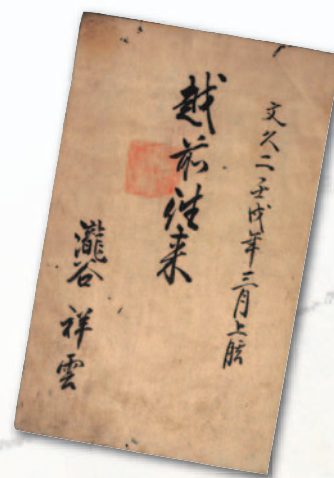 文久二壬戌年三月上旬
越前往来
瀧谷祥雲